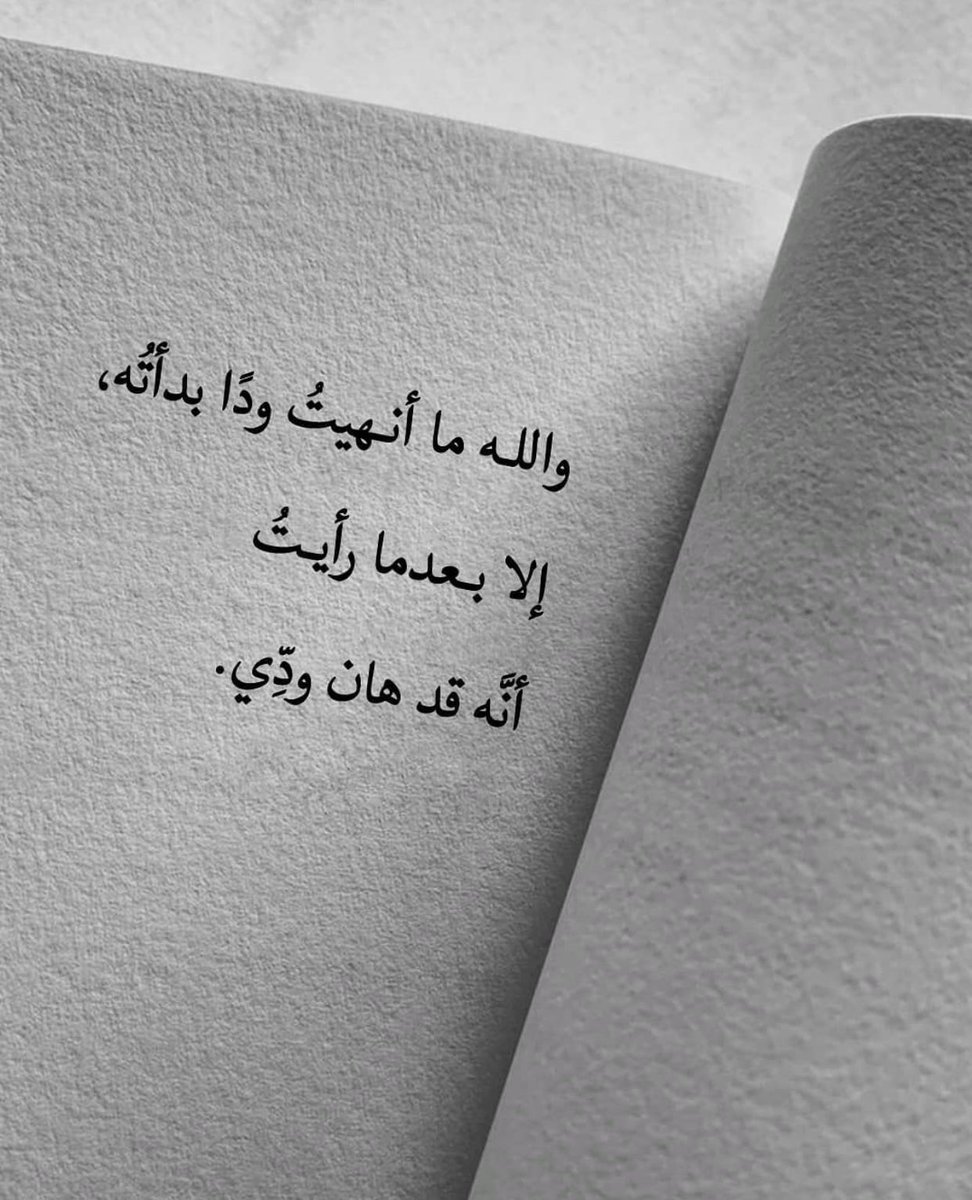 والله ما أنهيتُ ودًا بدأتُه،
إلا بعدما رأيتُ
أنَّه قد هان ودِّي.